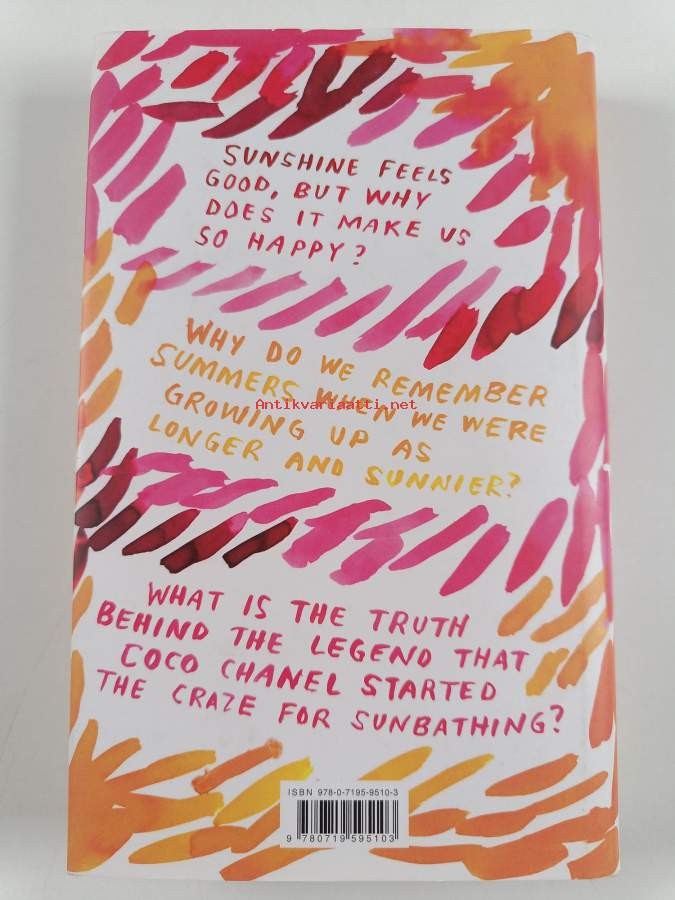 SUNSHINE FEELS
GOOD, BUT WHY
DOES IT MAKE US
SO HAPPY?
WHY DO WE REMEMBER
SUMMERS WHEN WE WERE
GROWING UP AS
LONGER AND SUNNIER?
Antikvariaatti.net
WHAT IS THE TRUTH
BEHIND THE LEGEND THAT
COCO CHANEL STARTED
THE CRAZE FOR SUNBATHING?
ISBN 978-0-7195-9510-3
9 780719 595103